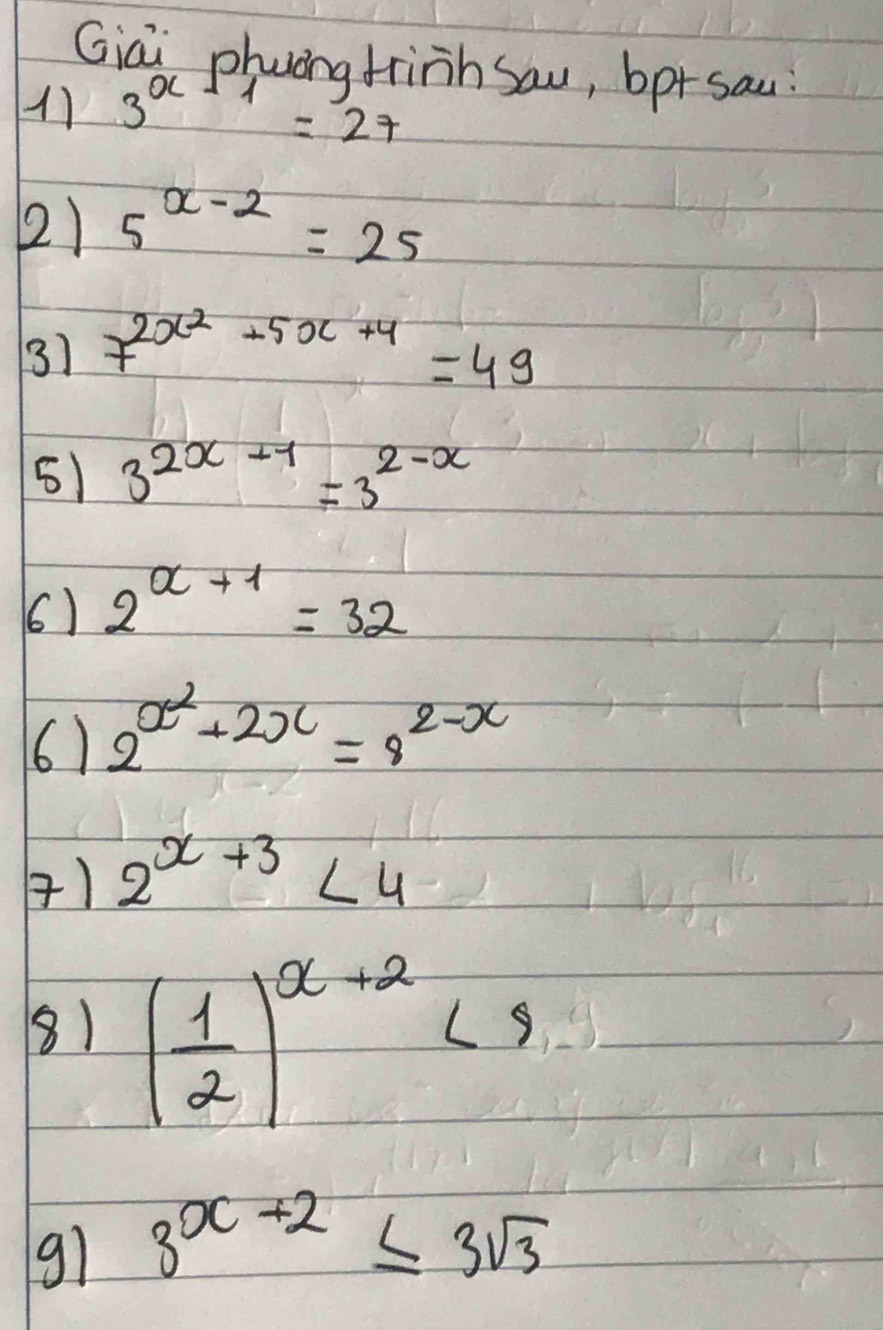 Giải phương trình sau, bpt sau:
1) 3^{x-1} = 27
2) 5^{x-2} = 25
3) 7^{2x^2+5x+4} = 49
5) 3^{2x+1} = 3^{2-x}
6) 2^{x+1} = 32
6) 2^{x^2+2x} = 8^{2-x}
7) 2^{x+3} < 4
8) (1/2)^{x+2} < 8
9) 3^{x+2} ≤ 3√3